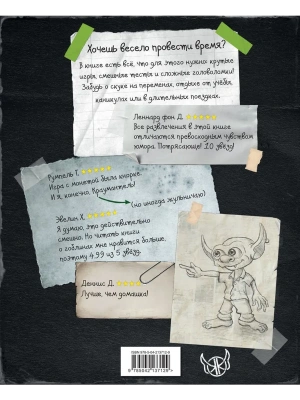 Хочешь весело провести время?
В книге есть всё, что для этого нужно: крутые
игры, смешные тесты и сложные головоломки!
Забудь о скуке на переменах, отдыхе от учёбы,
каникулах или в длительных поездках.
Леннард фон Д.
Все развлечения в этой книге
отличаются превосходным чувством
юмора. Потрясающе! 10 звёзд!
Румпель Т.
Игра с монетой была
И я, конечно,
(но иногда жульничаю)
Эвелин Х.
Я думаю, это действительно
смешно. Но читать книги
о гоблинах мне нравится больше,
поэтому 4.99 из 5 звёзд.
Деннис Д.
Лучше, чем домашка!